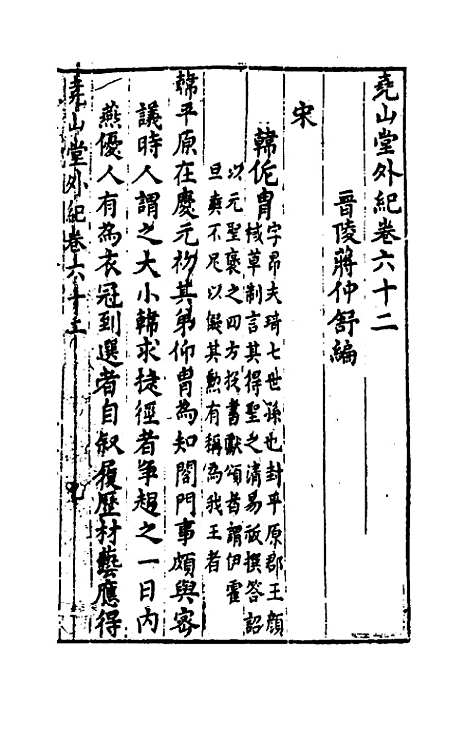 堯山堂外紀卷六十二
晉陵蔣仲舒編
宋
韓侂冑字昂夫琦七世孫也封平原郡王顔
棫草制言其得聖之清易祓撰答詔
以元聖褒之四方投書獻頌者謂伊霍
旦奭不足以儗其勲有稱為我王者
韓平原在慶元初其弟仰冑為知閤門事頗與宻
議時人謂之大小韓求捷徑者争趨之一日内
燕優人有為衣冠到選者自叙履歴材藝應得
堯山堂外紀卷六十二